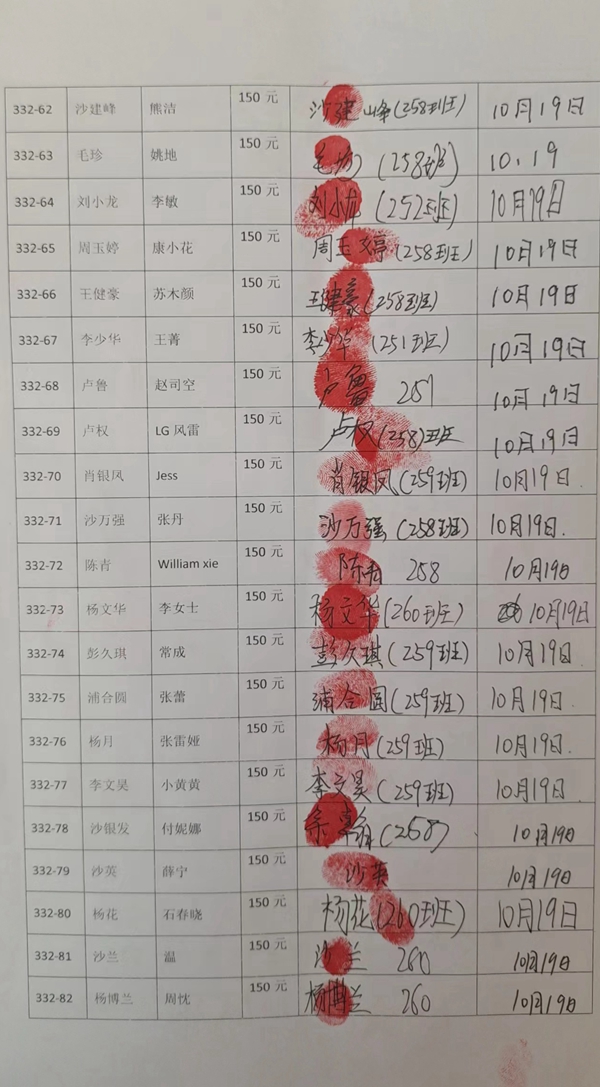 332-62 沙建峰 熊洁 150 元 沙建峰(258班) 10月19日
332-63 毛珍 姚地 150 元 毛 (258班) 10.19
332-64 刘小龙 李敏 150 元 刘小龙 (252班) 10月19日
332-65 周玉婷 康小花 150 元 周玉婷 (258班) 10月19日
332-66 王健豪 苏木颜 150 元 王健豪(258班) 10月19日
332-67 李少华 王菁 150 元 李少华 (251班) 10月19日
332-68 卢鲁 赵司空 150 元 卢鲁 10月19日
332-69 卢权 LG 风雷 150 元 卢权(258)班 10月19日
332-70 肖银凤 Jess 150 元 肖银凤(259班) 10月19日.
332-71 沙万强 张丹 150 元 沙万强(258班) 10月19日.
332-72 陈青 William xie 150 元 陈青 258 10月19日
332-73 杨文华 李女士 150 元 杨文华(260班) 10月19日
332-74 彭久琪 常成 150 元 彭久琪(259班) 10月19日.
332-75 浦合圆 张蕾 150 元 浦合圆(259班) 10月19日.
332-76 杨月 张雷娅 150 元 杨月(259班) 10月19日.
332-77 李文昊 小黄黄 150 元 李文昊(259班) 10月19日.
332-78 沙银发 付妮娜 150 元 (258) 10月19日
332-79 沙英 薛宁 150 元 沙英 10月19日
332-80 杨花 石春晓 150 元 杨花(260班) 10月19日
332-81 沙兰 温 150 元 沙兰 260 10月19日
332-82 杨博兰 周忱 150 元 杨博兰 260 10月19日